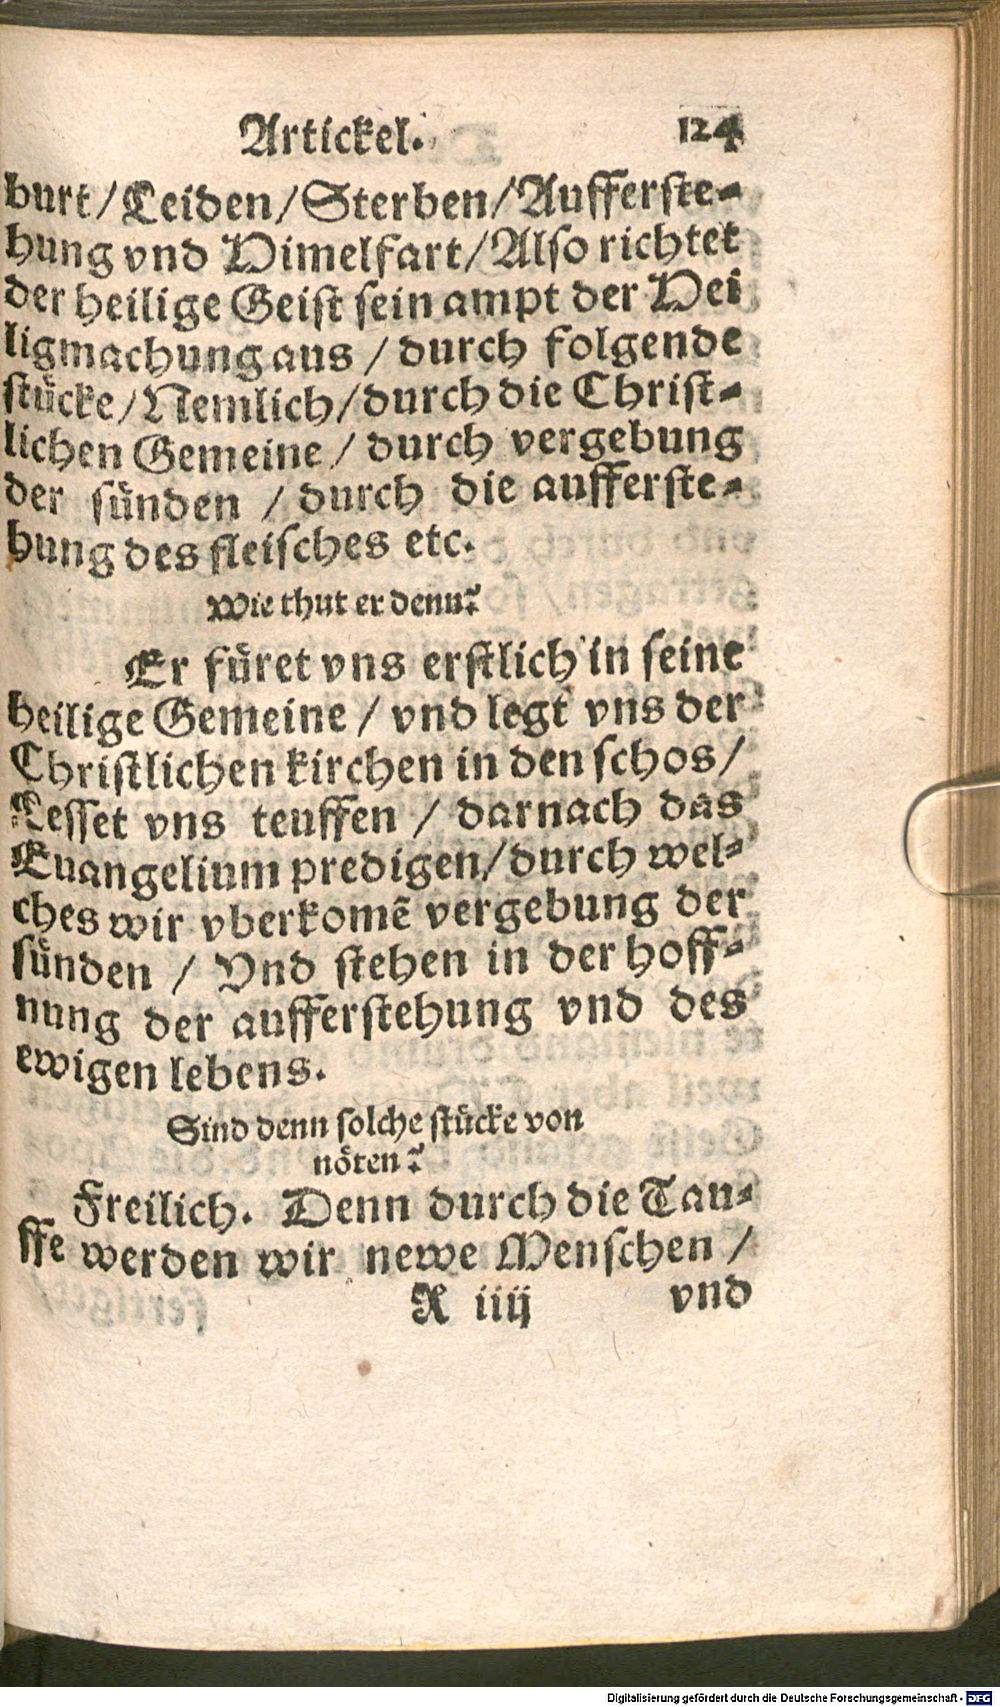 Artickel. 124
burt/Leiden/Sterben/Aufferste-
hung vnd Himelfart/Also richtet
der heilige Geist sein ampt der Hei
ligmachung aus / durch folgende
stücke/Nemlich/durch die Christ-
lichen Gemeine / durch vergebung
der sünden / durch die aufferste-
hung des fleisches etc.
Wie thut er denn?
Er füret vns erstlich in seine
heilige Gemeine / vnd legt vns der
Christlichen kirchen in den schos/
Lesset vns teuffen / darnach das
Euangelium predigen/durch wel-
ches wir vberkomē vergebung der
sünden / Vnd stehen in der hoff-
nung der aufferstehung vnd des
ewigen lebens.
Sind denn solche stücke von
nöten?
Freilich. Denn durch die Tau-
ffe werden wir newe Menschen /
R iiij vnd
Digitalisierung gefördert durch die Deutsche Forschungsgemeinschaft - DFG